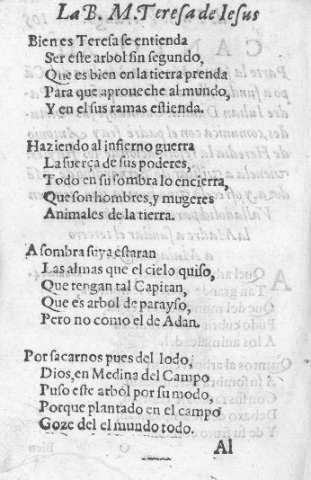 La B. M. Teresa de Iesus
Bien es Teresa se entienda
Ser este arbol sin segundo,
Que es bien en la tierra prenda
Para que aproueche al mundo,
Y en el sus ramas estienda.
Haziendo al infierno guerra
La fuerça de sus poderes,
Todo en su sombra lo encierra,
Que son hombres, y mugeres
Animales de la tierra.
A sombra suya estaran
Las almas que el cielo quiso,
Que tengan tal Capitan,
Que es arbol de parayso,
Pero no como el de Adan.
Por sacarnos pues del lodo,
Dios, en Medina del Campo
Puso este arbol por su modo,
Porque plantado en el campo
Goze del el mundo todo.
Al